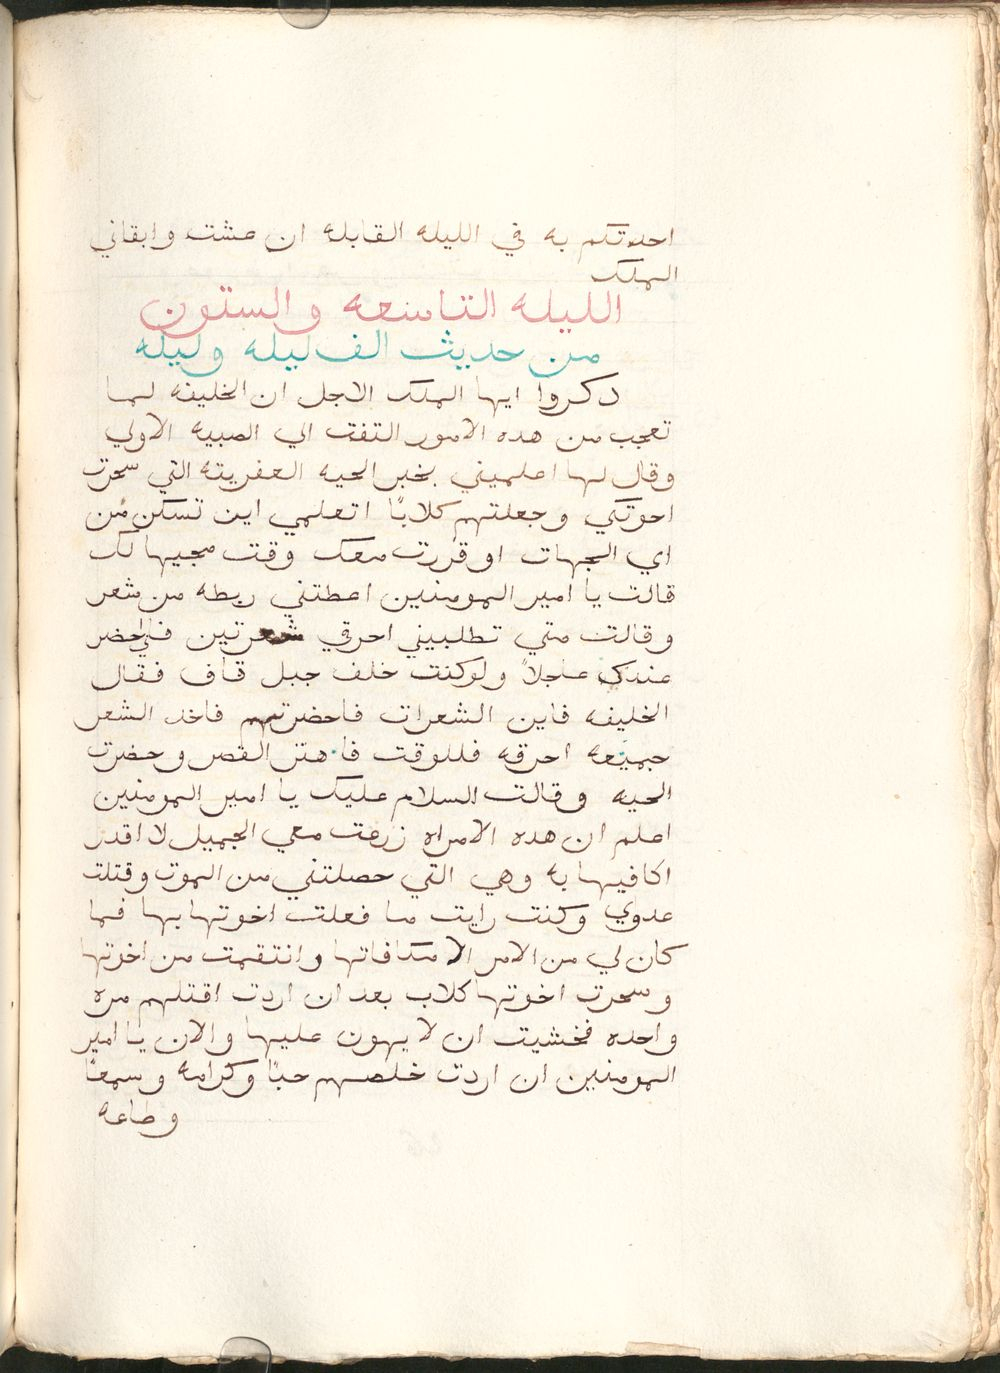 احدتكم به في الليله القابله ان عشت وابقاني
الملك
الليله التاسعه والستون
من حديث الف ليله وليله
دكروا ايها الملك الاجل ان الخليفه لما
تعجب من هده الامور التفت الي الصبيه الاولي
وقال لها اعلميني بخبر الحيه العفريته التي سحرت
اخوتكي وجعلتهم كلابًا اتعلمي اين تسكن من
اي الجهات او قررت معك وقت مجيها لك
قالت يا امير المومنين اعطتني ربطه من شعر
وقالت متي تطلبيني احرقي شعرتين فاني احضر
عندك عاجلاً ولو كنت خلف جبل قاف فقال
الخليفه فاين الشعرات فاحضرتهم فاخد الشعر
جميعه احرقه فللوقت فاهتز القصر وحضرت
الحيه وقالت السلام عليك يا امير المومنين
اعلم ان هده الامراه زرعت معي الجميل لا اقدر
اكافيها به وهي التي خصلتني من الموت وقتلت
عدوي وكنت رايت ما فعلت اخوتها بها فما
كان لي من الامر الا مكافاتها وانتقمت من اخوتها
وسحرت اخوتها كلاب بعد ان اردت اقتلهم مره
واحده فخشيت ان لا يهون عليها والان يا امير
المومنين ان اردت خلصهم حبًا وكرامه وسمعًا
وطاعه